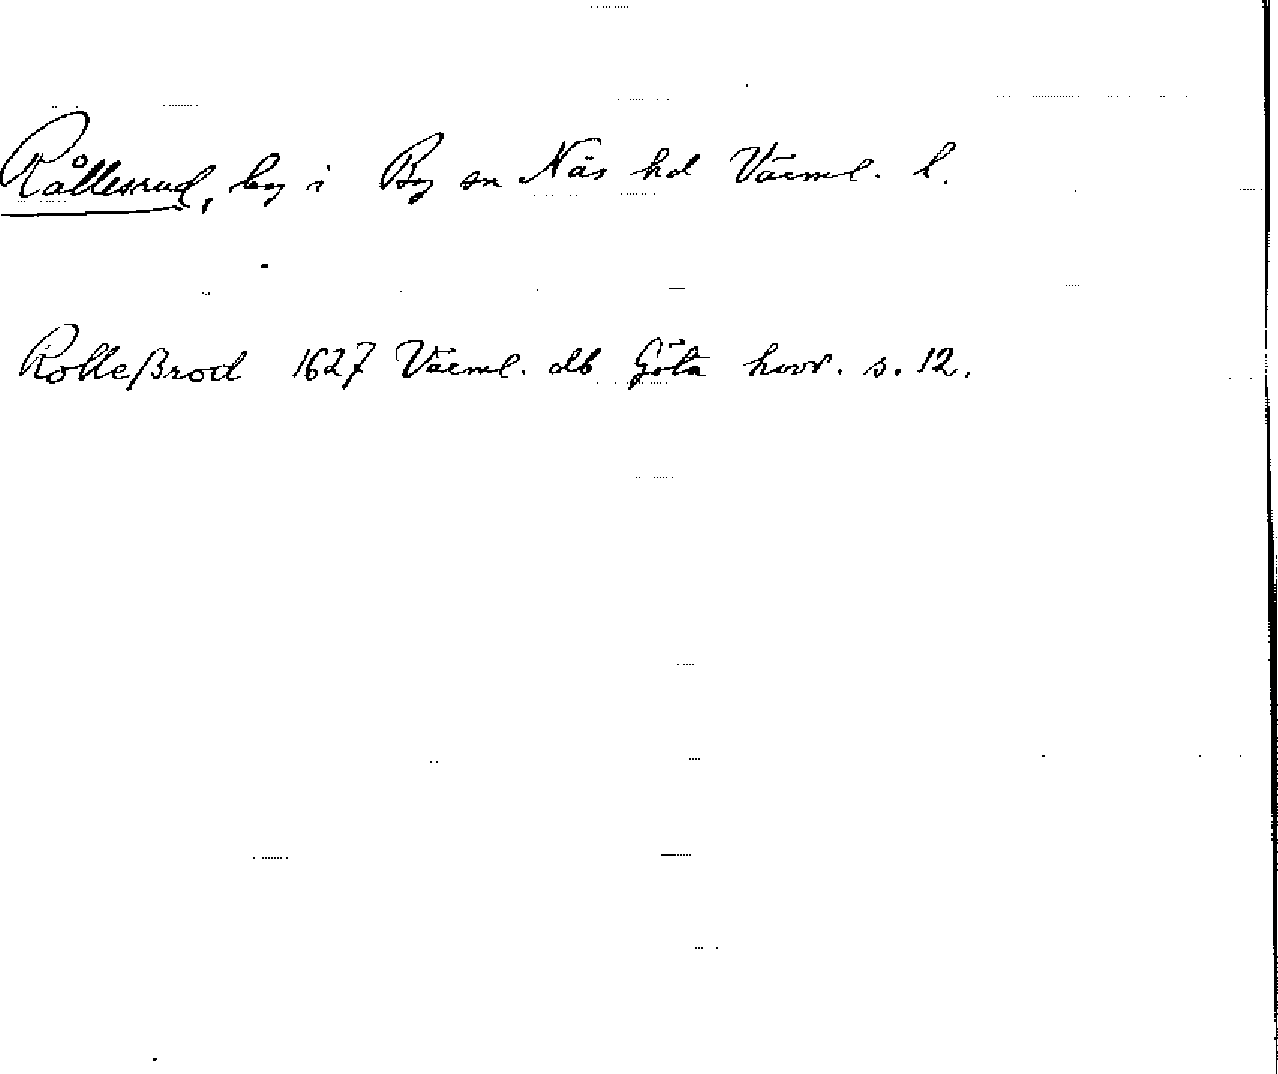 Rållesrud, by i By sn Näs hd Värml. l.
Rolleßrod 1627 Värml. db Göta hovr. s. 12.